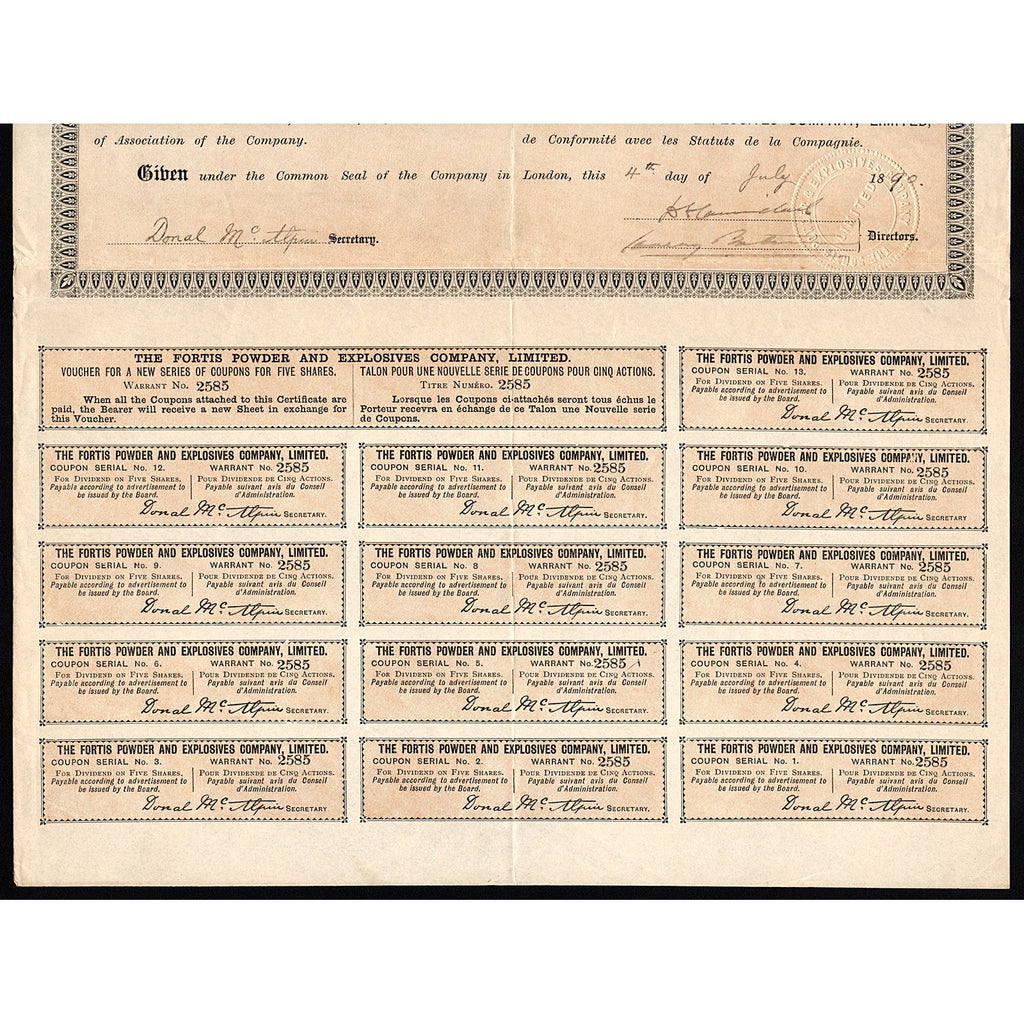 COMPANY, LIMITED,
of Association of the Company.
de Conformité avec les Statuts de la Compagnie.
Given under the Common Seal of the Company in London, this 4th day of July 1890.
Donal McAlpin Secretary.
Directors.
EXPLOSIVES COMPANY LIMITED
THE FORTIS POWDER AND EXPLOSIVES COMPANY, LIMITED.
VOUCHER FOR A NEW SERIES OF COUPONS FOR FIVE SHARES.
WARRANT No. 2585
When all the Coupons attached to this Certificate are
paid, the Bearer will receive a new Sheet in exchange for
this Voucher.
TALON POUR UNE NOUVELLE SERIE DE COUPONS POUR CINQ ACTIONS.
TITRE NUMÉRO. 2585
Lorsque les Coupons ci-attachés seront tous échus le
Porteur recevra en échange de ce Talon une Nouvelle serie
de Coupons.
THE FORTIS POWDER AND EXPLOSIVES COMPANY, LIMITED.
COUPON SERIAL No. 13. WARRANT No. 2585
FOR DIVIDEND ON FIVE SHARES.
Payable according to advertisement to
be issued by the Board.
POUR DIVIDENDE DE CINQ ACTIONS.
Payable suivant avis du Conseil
d'Administration.
Donal McAlpin SECRETARY.
THE FORTIS POWDER AND EXPLOSIVES COMPANY, LIMITED.
COUPON SERIAL No. 12. WARRANT No. 2585
FOR DIVIDEND ON FIVE SHARES.
Payable according to advertisement to
be issued by the Board.
POUR DIVIDENDE DE CINQ ACTIONS.
Payable suivant avis du Conseil
d'Administration.
Donal McAlpin SECRETARY.
THE FORTIS POWDER AND EXPLOSIVES COMPANY, LIMITED.
COUPON SERIAL No. 11. WARRANT No. 2585
FOR DIVIDEND ON FIVE SHARES.
Payable according to advertisement to
be issued by the Board.
POUR DIVIDENDE DE CINQ ACTIONS.
Payable suivant avis du Conseil
d'Administration.
Donal McAlpin SECRETARY.
THE FORTIS POWDER AND EXPLOSIVES COMPANY, LIMITED.
COUPON SERIAL No. 10. WARRANT No. 2585
FOR DIVIDEND ON FIVE SHARES.
Payable according to advertisement to
be issued by the Board.
POUR DIVIDENDE DE CINQ ACTIONS.
Payable suivant avis du Conseil
d'Administration.
Donal McAlpin SECRETARY.
THE FORTIS POWDER AND EXPLOSIVES COMPANY, LIMITED.
COUPON SERIAL No. 9. WARRANT No. 2585
FOR DIVIDEND ON FIVE SHARES.
Payable according to advertisement to
be issued by the Board.
POUR DIVIDENDE DE CINQ ACTIONS.
Payable suivant avis du Conseil
d'Administration.
Donal McAlpin SECRETARY.
THE FORTIS POWDER AND EXPLOSIVES COMPANY, LIMITED.
COUPON SERIAL No. 8 WARRANT No. 2585
FOR DIVIDEND ON FIVE SHARES.
Payable according to advertisement to
be issued by the Board.
POUR DIVIDENDE DE CINQ ACTIONS.
Payable suivant avis du Conseil
d'Administration.
Donal McAlpin SECRETARY.
THE FORTIS POWDER AND EXPLOSIVES COMPANY, LIMITED.
COUPON SERIAL No. 7. WARRANT No. 2585
FOR DIVIDEND ON FIVE SHARES.
Payable according to advertisement to
be issued by the Board.
POUR DIVIDENDE DE CINQ ACTIONS.
Payable suivant avis du Conseil
d'Administration.
Donal McAlpin SECRETARY.
THE FORTIS POWDER AND EXPLOSIVES COMPANY, LIMITED.
COUPON SERIAL No. 6. WARRANT No. 2585
FOR DIVIDEND ON FIVE SHARES.
Payable according to advertisement to
be issued by the Board.
POUR DIVIDENDE DE CINQ ACTIONS.
Payable suivant avis du Conseil
d'Administration.
Donal McAlpin SECRETARY.
THE FORTIS POWDER AND EXPLOSIVES COMPANY, LIMITED.
COUPON SERIAL No. 5. WARRANT No. 2585
FOR DIVIDEND ON FIVE SHARES.
Payable according to advertisement to
be issued by the Board.
POUR DIVIDENDE DE CINQ ACTIONS.
Payable suivant avis du Conseil
d'Administration.
Donal McAlpin SECRETARY.
THE FORTIS POWDER AND EXPLOSIVES COMPANY, LIMITED.
COUPON SERIAL No. 4. WARRANT No. 2585
FOR DIVIDEND ON FIVE SHARES.
Payable according to advertisement to
be issued by the Board.
POUR DIVIDENDE DE CINQ ACTIONS.
Payable suivant avis du Conseil
d'Administration.
Donal McAlpin SECRETARY.
THE FORTIS POWDER AND EXPLOSIVES COMPANY, LIMITED.
COUPON SERIAL No. 3. WARRANT No. 2585
FOR DIVIDEND ON FIVE SHARES.
Payable according to advertisement to
be issued by the Board.
POUR DIVIDENDE DE CINQ ACTIONS.
Payable suivant avis du Conseil
d'Administration.
Donal McAlpin SECRETARY
THE FORTIS POWDER AND EXPLOSIVES COMPANY, LIMITED.
COUPON SERIAL No. 2. WARRANT No. 2585
FOR DIVIDEND ON FIVE SHARES.
Payable according to advertisement to
be issued by the Board.
POUR DIVIDENDE DE CINQ ACTIONS.
Payable suivant avis du Conseil
d'Administration.
Donal McAlpin SECRETARY.
THE FORTIS POWDER AND EXPLOSIVES COMPANY, LIMITED.
COUPON SERIAL No. 1. WARRANT No. 2585
FOR DIVIDEND ON FIVE SHARES.
Payable according to advertisement to
be issued by the Board.
POUR DIVIDENDE DE CINQ ACTIONS.
Payable suivant avis du Conseil
d'Administration.
Donal McAlpin SECRETARY.